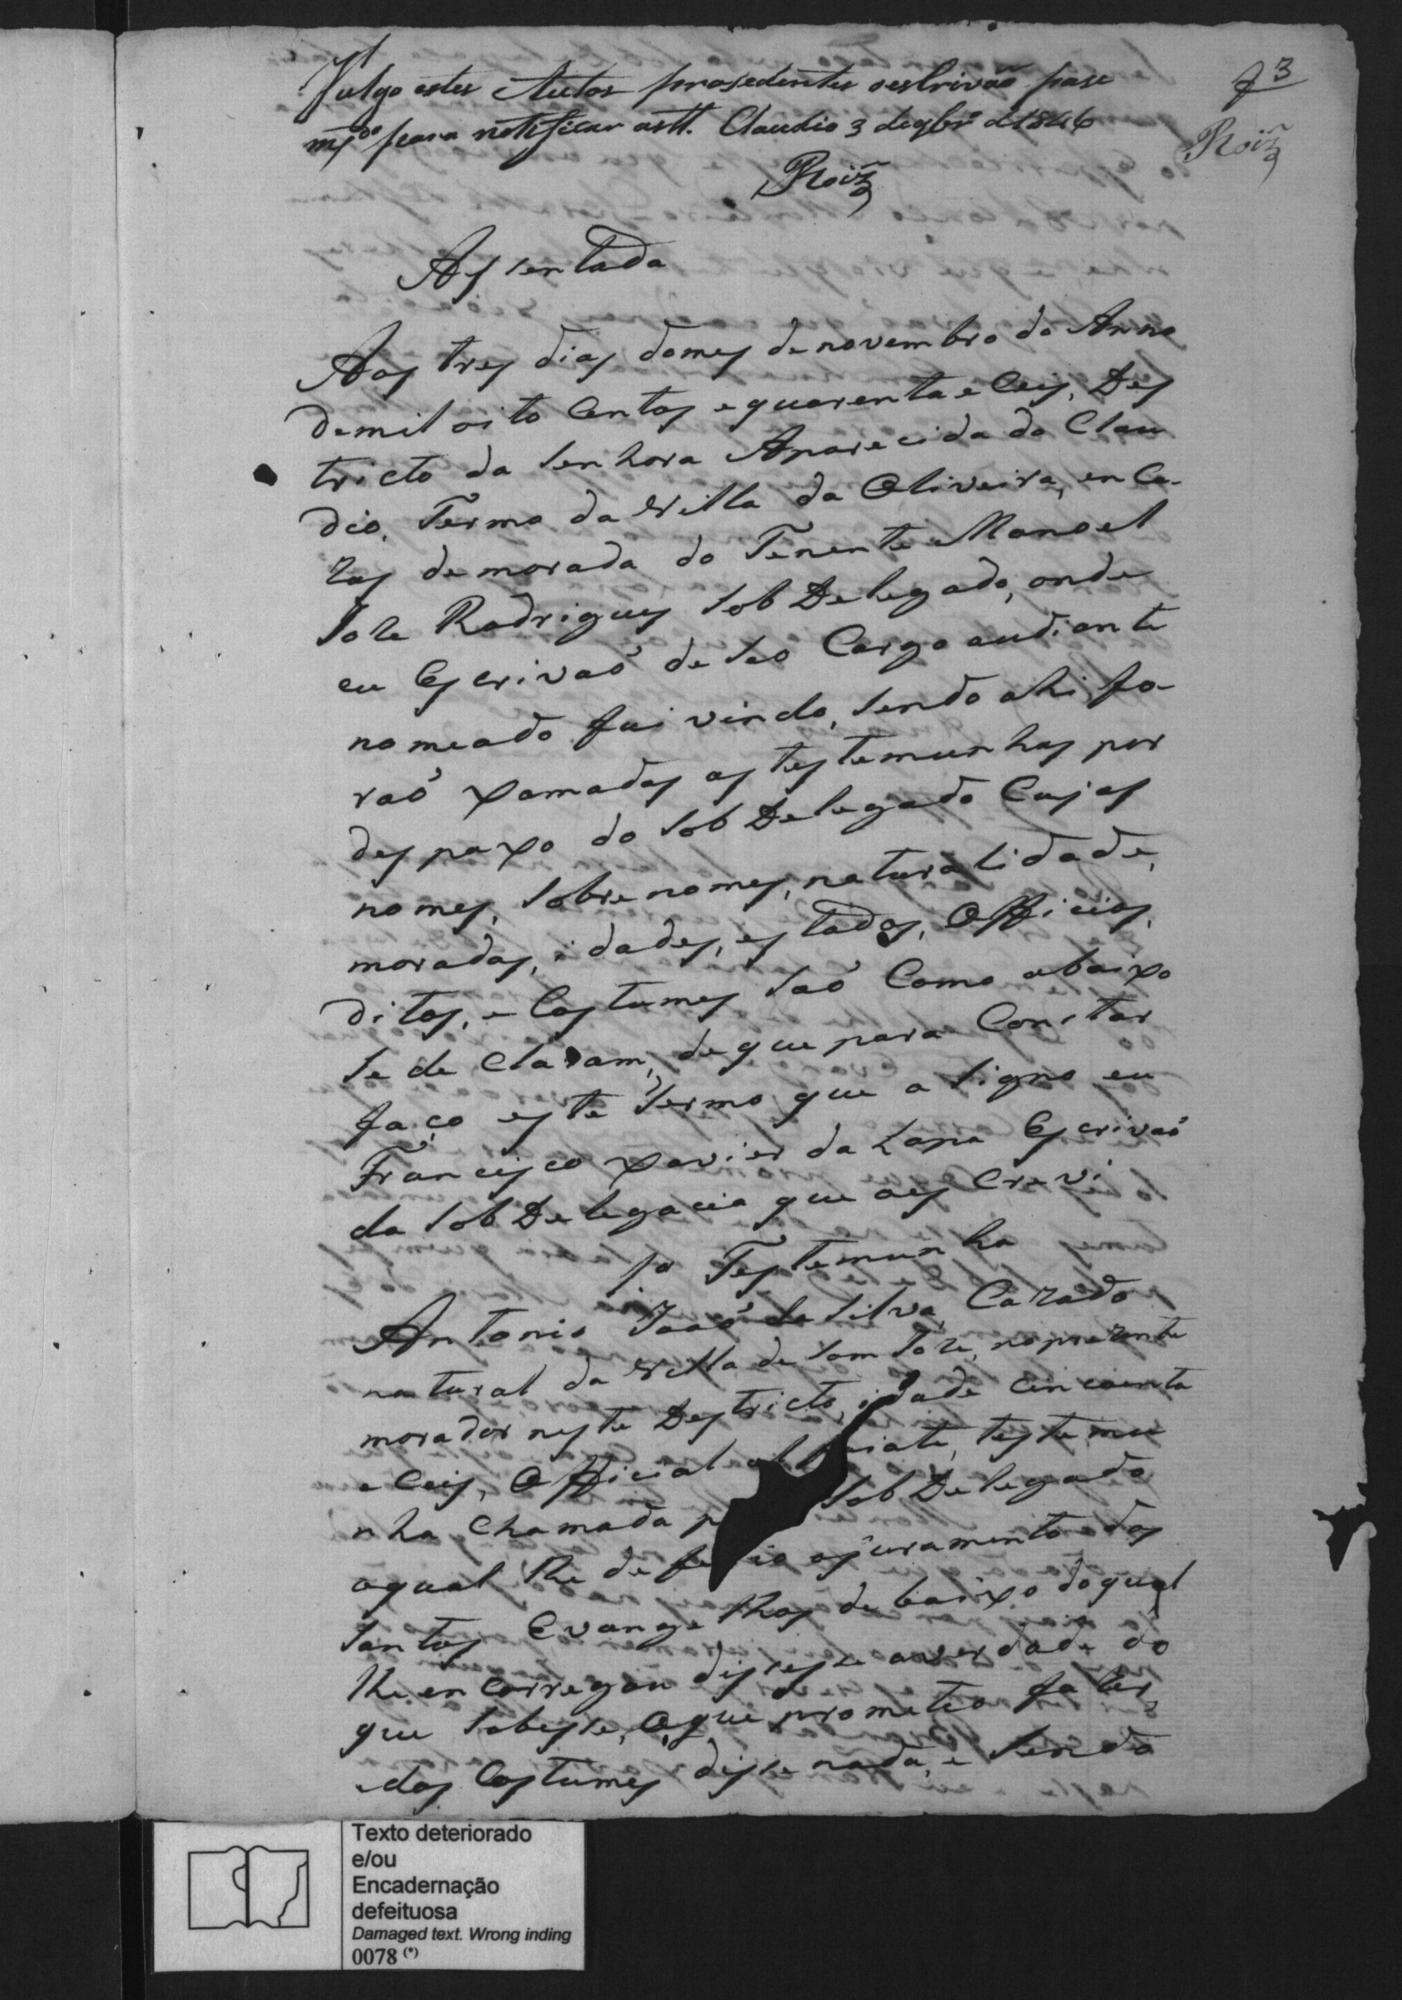 f 3
Roiz
Julgo estes Autos prosedentes oescrivaõ pase
m.do para notificar as tt. Claudio 3 de 9br.o d 1846
Roiz
Assentada
Aos tres dias domes de novembro do Anno
demil oito Centos e quarenta e Ceis, Des
tricto da Senhora Aparecida do Clau
dio, Termo da Villa da Oliveira, en Ca-
zas de morada do Tenente Manoel
Joze Rodrigues Sob Delegado, onde
eu Escrivaõ de Seo Cargo audiante
nomeado fui vindo, Sendo ahi fo-
raõ xamadas as testemunhas por
despaxo do Sob Delegado Cujos
nomes, Sobre nomes, naturalidade,
moradas, idades, estados, Officios,
ditos, e Costumes Saõ Como abaixo
Se de Claram, de que para Constar
faço este termo que a Signo eu
Francisco Xavier da Lapa Escrivaõ
da Sob Delegacia que oes Crevi
1a Testemunha
Antonio Joaõ da Silva, Cazado
natural da Villa de Sam Joze, noprezente
morador neste Destricto, idade Cincoenta
e Ceis, Official al iate, testemu
nha Chamada p Sob Delegado
aqual lhe defe io ojuramento dos
Santos Evangelhos de baixo doqual
lhe encarregou dissesse averdade do
que Sobesse, Oque prometeo fazer,
e dos Costumes disse nada, e Sendo
Texto deteriorado
e/ou
Encadernação
defeituosa
Damaged text. Wrong inding
0078 (*)